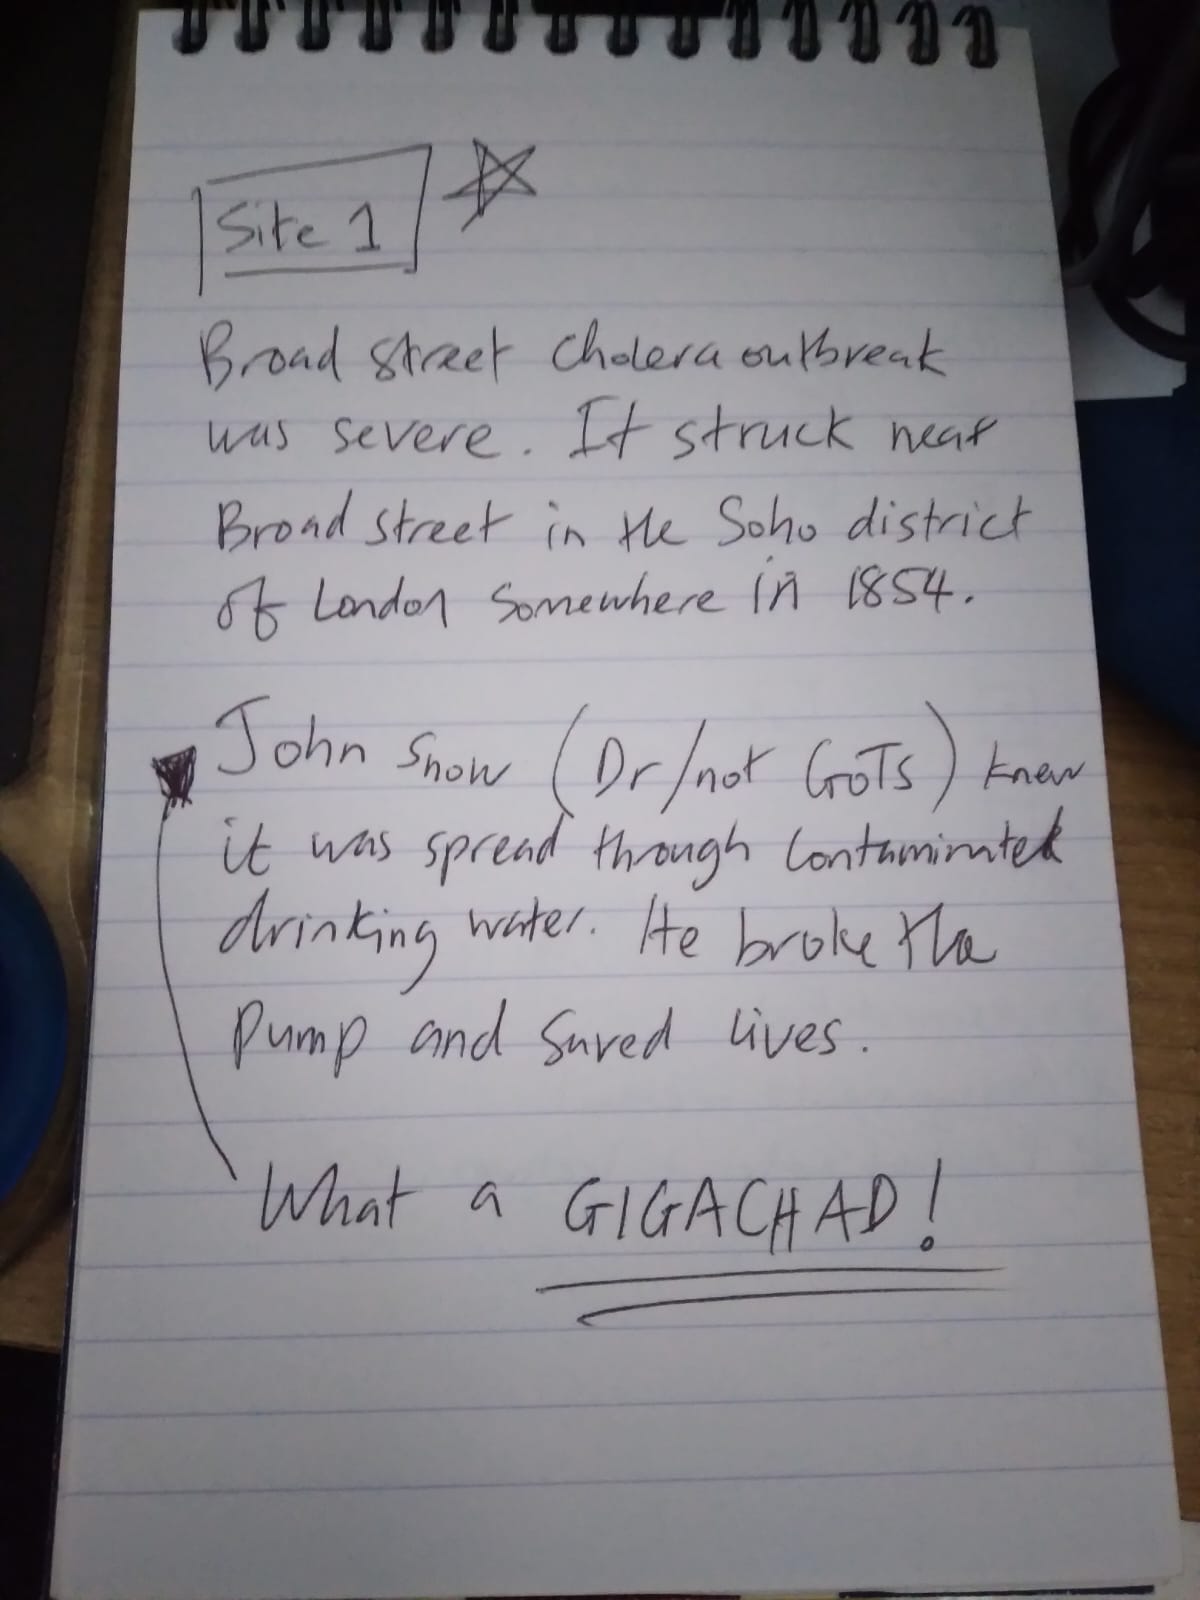 Site 1
Broad street Cholera outbreak
was severe. It struck near
Broad street in the Soho district
of London Somewhere in 1854.
John Snow (Dr/not GoTs) knew
it was spread through Contaminated
drinking water. He broke the
Pump and Saved lives.
What a GIGACHAD!